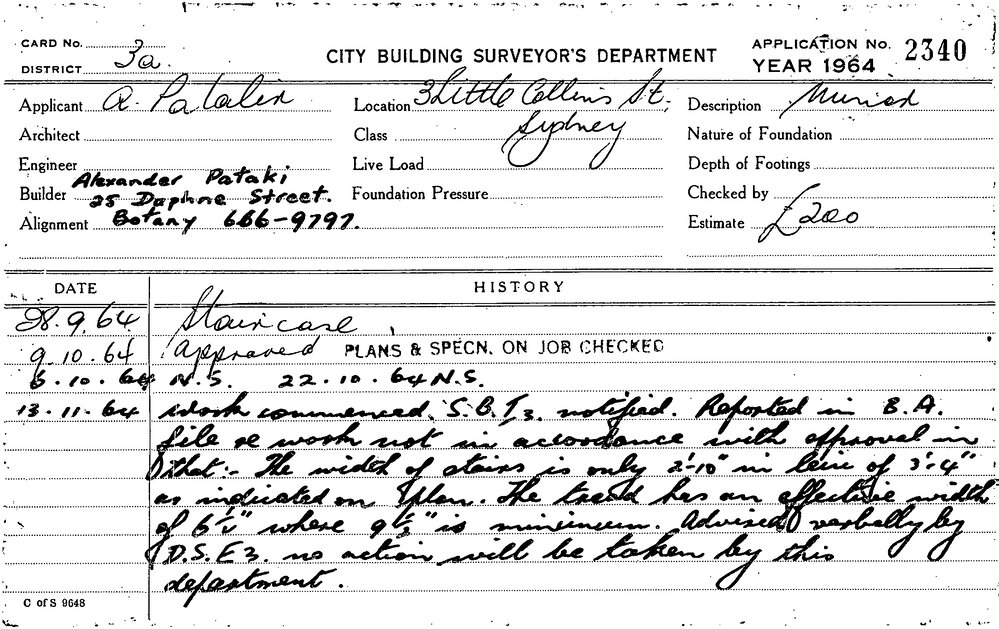 CARD No.
DISTRICT 3a.
CITY BUILDING SURVEYOR'S DEPARTMENT
APPLICATION No. 2340
YEAR 1964
Applicant A. Patalin
Location 3 Little Collins St,
Sydney
Description
Architect
Class
Nature of Foundation
Engineer
Live Load
Depth of Footings
Builder Alexander Pataki
25 Daphne Street.
Botany 666-9797.
Foundation Pressure
Checked by
Alignment
Estimate £200
DATE
HISTORY
28.9.64 Staircase
9.10.64 Approved PLANS & SPECN. ON JOB CHECKED
6.10.64 N.S. 22.10.64 N.S.
13.11.64 Work commenced. S.B.I3. notified. Reported in B.A.
file re work not in accordance with approval in
that:- The width of stairs is only 2'-10" in leiu of 3'-4"
as indicated on plan. The tread has an effective width
of 6½" where 9½" is minimum. Advised verbally by
D.S.E3. no action will be taken by this
department.
C of S 9648